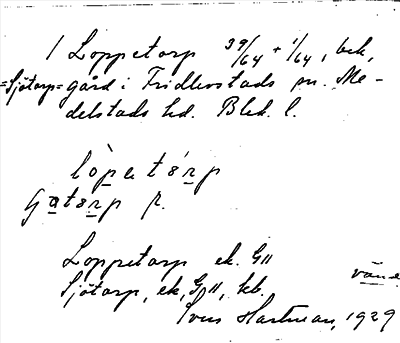 1 Loppetorp 39/64 + 1/64, bek,
=Sjötorp= gård i Fridlevstads sn. Me-
delstads hd. Blek. l.
lòpetórp
Loppetorp ek. GII
vänd
Sjötorp, ek, GII, kb.
Ivar Hartman, 1929